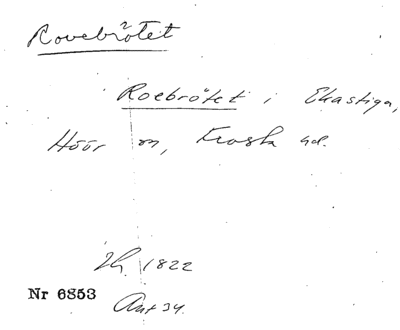 Rovebrötet
Roebrötet i Ekastiga,
Höör sn, Frosta hd.
Lh. 1822
Nr 6853
Ant 34.